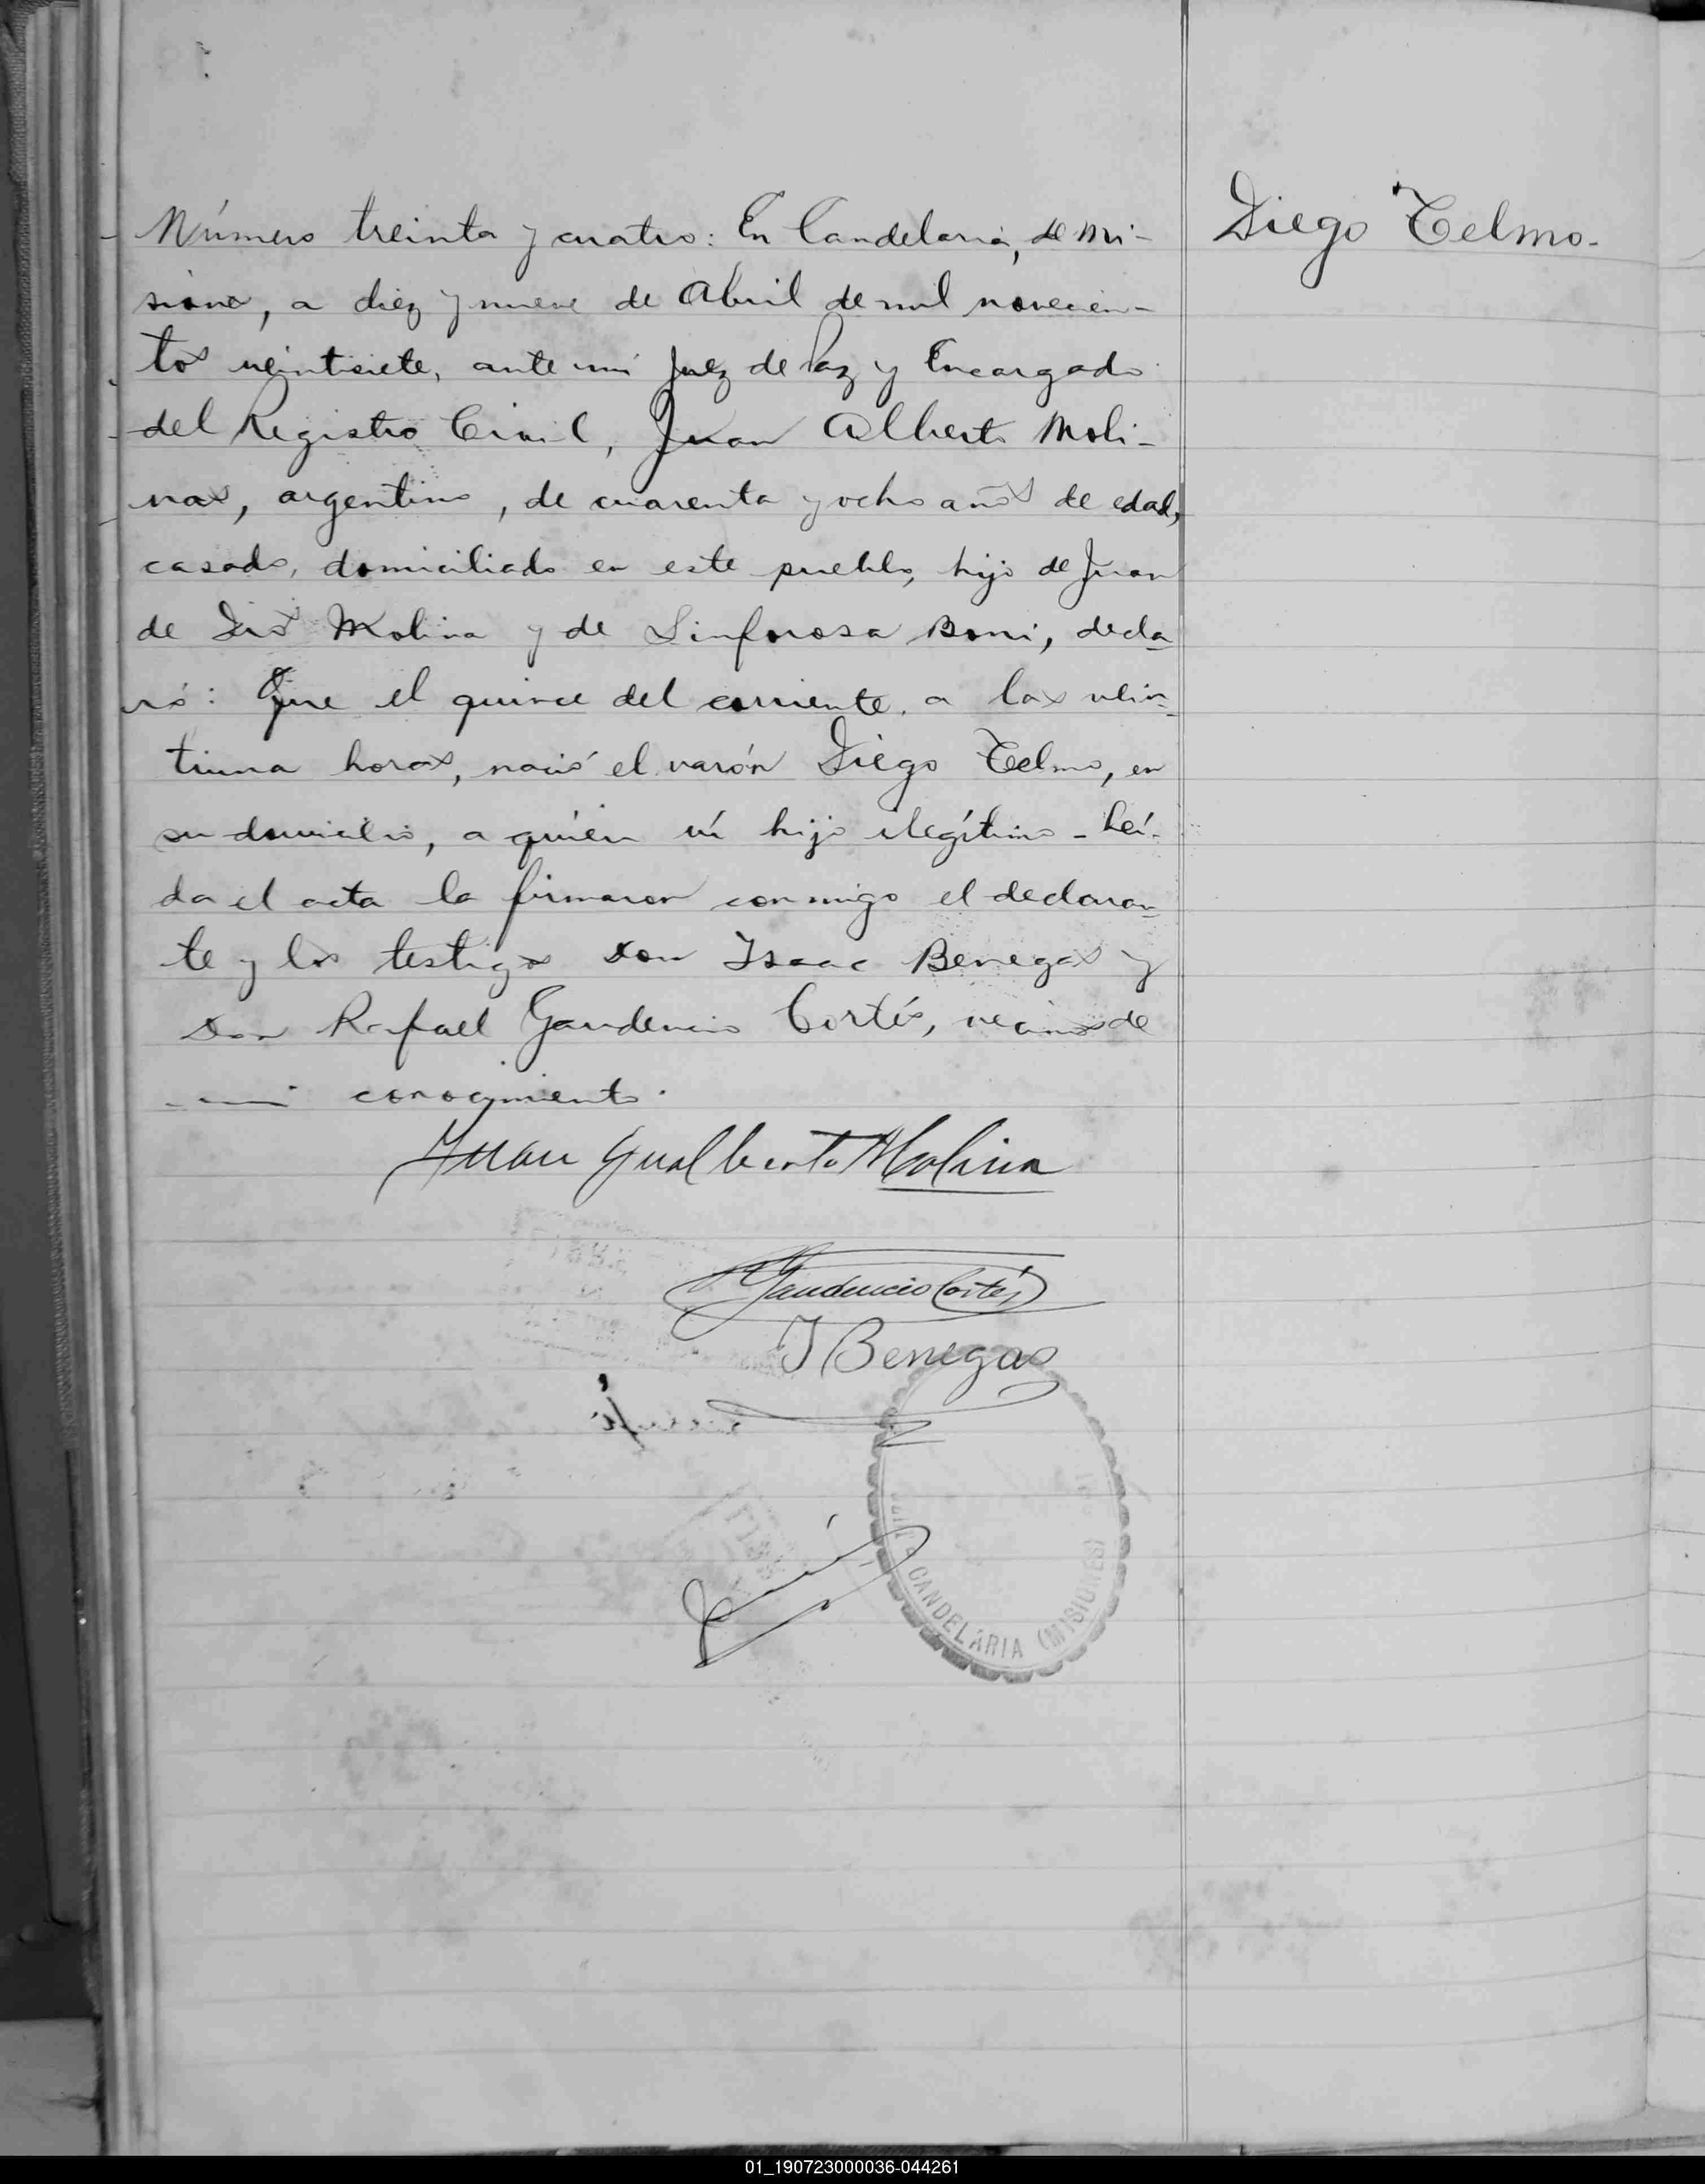 Número treinta y cuatro: En Candelaria, de Mi-
siones, a diez y nueve de Abril de mil novecien-
tos veintisiete, ante mí Juez de Paz y Encargado
del Registro Civil, Juan Alberto Moli-
nas, argentino, de cuarenta y ocho años de edad,
casado, domiciliado en este pueblo, hijo de Juan
de Dios Molina y de Sinforosa Boni, decla
ró: Que el quince del corriente, a las vein-
tiuna horas, nació el varón Diego Telmo, en
su domicilio, a quien ví hijo ilegítimo - Leí-
da el acta la firmaron conmigo el declaran-
te y los testigos Don Isaac Benegas y
Don Rafael Gaudencio Cortés, vecinos de
mi conocimiento.
Diego Telmo.
Juan Gualberto Molina
Gaudencio Cortés
I Benegas
CANDELARIA (MISIONES)
01_190723000036-044261